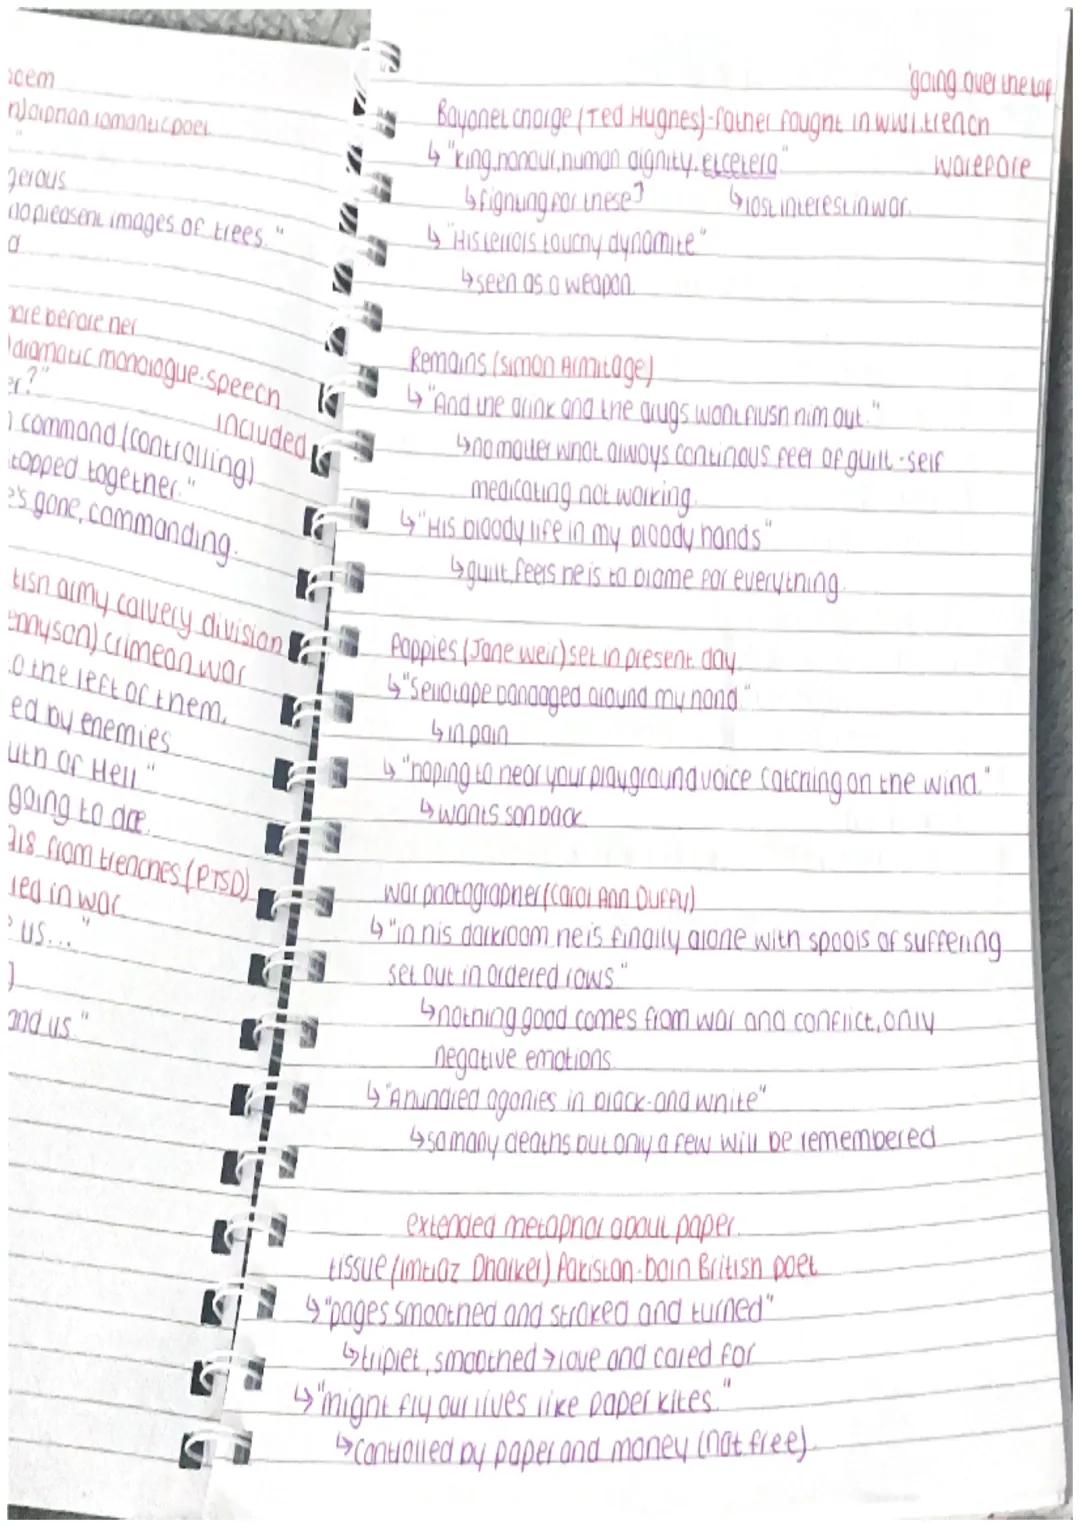 oem
n) orphan romantic poet
"
gerous
no pleasent images of trees."
d
more before her
dramatic monologue-speech
er?"
included
command (controlling)
topped together."
e's gone, commanding.
tish army calvery division
ennyson) crimean war
o the left of them,
ed by enemies
uth of Hell"
going to die.
918 from trenches (PTSD)
ied in war
us..."
and us."
'going over the top'
Bayonet charge (Ted Hughes)-father fought in ww1.trench
warefare
↳"king,honour,human dignity.etcetera"
↳fighting for these? ↳lost interest in war.
↳"His terrors touchy dynamite"
↳seen as a weapon.
Remains (Simon Armitage)
↳"And the drink and the drugs wont flush him out."
↳no matter what always continous feel of guilt-self
medicating not working.
↳"His bloody life in my bloody hands"
↳guilt, feels he is to blame for everything.
Poppies (Jane weir) set in present day.
↳"Sellotape bandaged around my hand."
↳in pain
↳"hoping to hear your playground voice catching on the wind."
↳wants son back
war photographer (Carol Ann Duffy)
↳"in his darkroom he is finally alone with spools of suffering
set out in ordered rows"
↳nothing good comes from war and conflict, only
negative emotions.
↳"A hundred agonies in black-and white"
↳so many deaths but only a few will be remembered
extended metaphor about paper.
tissue (Imtiaz Dharker) Pakistan-born British poet
↳"pages smoothed and stroked and turned"
↳triplet, smoothed→love and cared for
↳"might fly our lives like paper kites."
↳controlled by paper and money (not free).